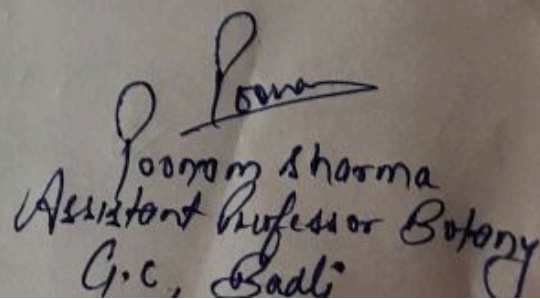 Poonam
Poonam Sharma
Assistant Professor Botany
G.C, Badli